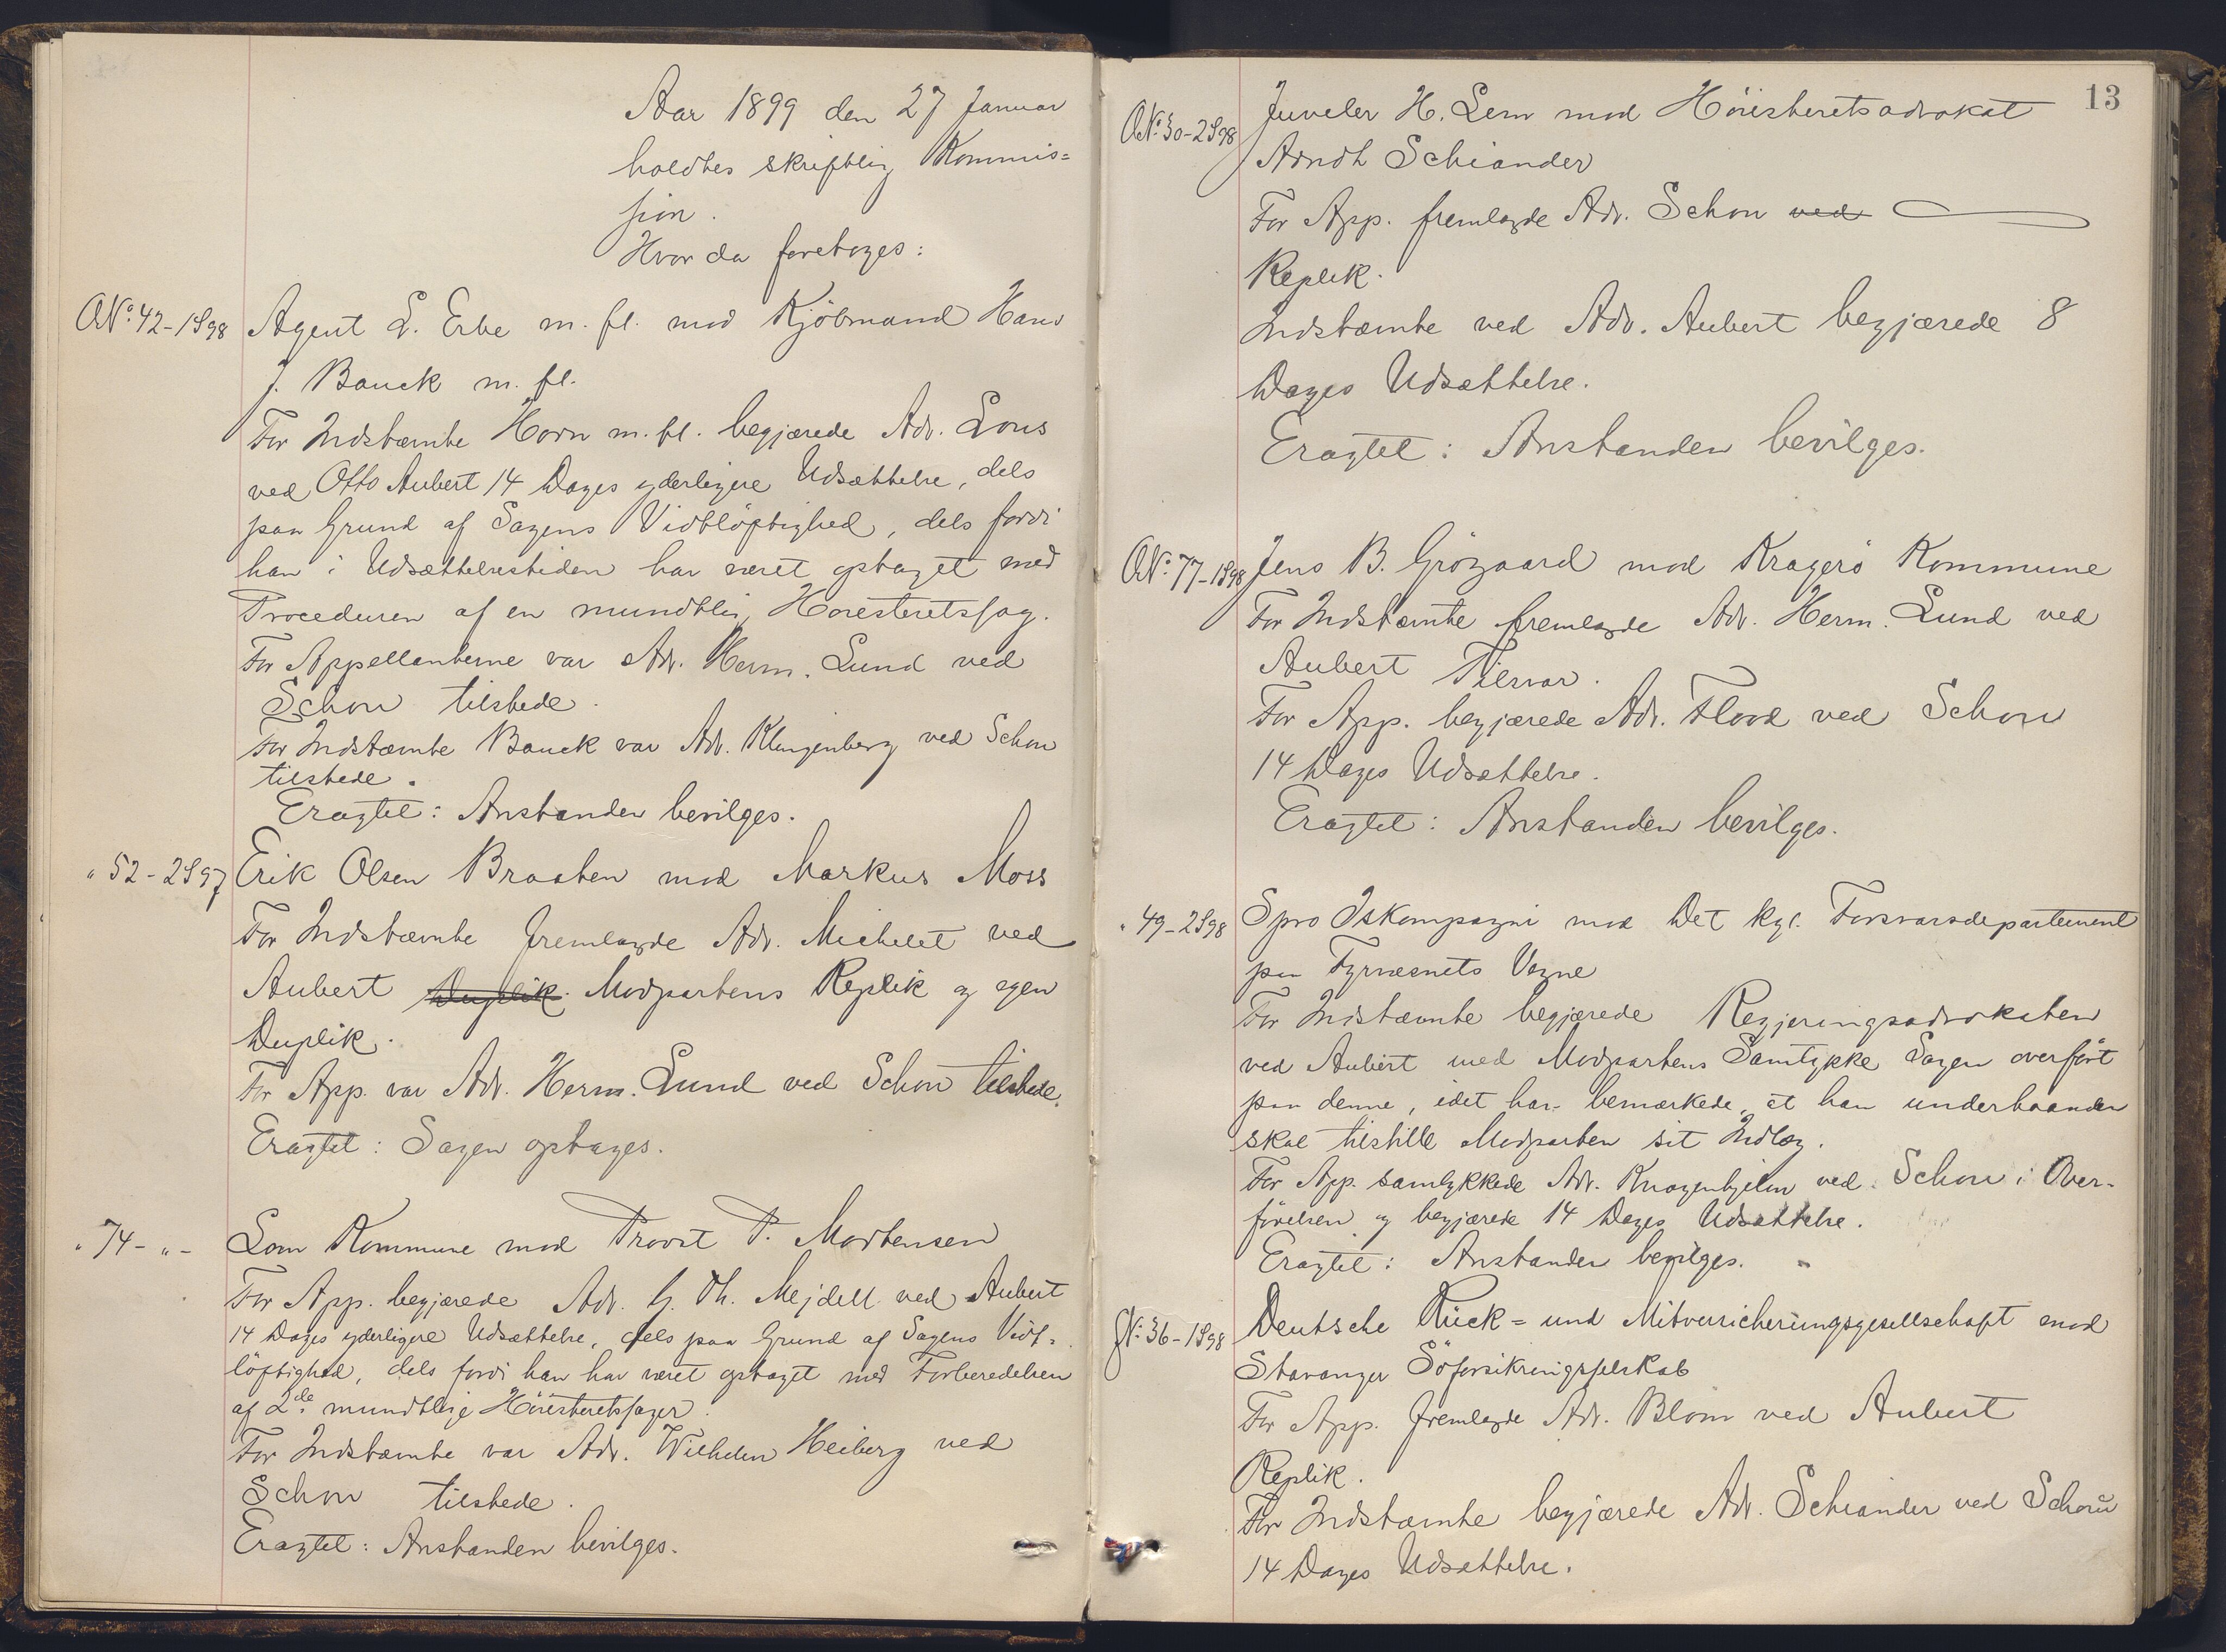 Aar 1899 den 27 Januar
holdtes skriftlig Kommis=
sion.
Hvor da foretoges:
ANo. 42-1S98 Agent L. Erbe m. fl. mod Kjöbmand Hans
J. Bauck m. fl.
For Indstævnte Horn m. fl. begjærede Adv. Lous
ved Otto Aubert 14 Dages yderligere Udsættelse, dels
paa Grund af Sagens Vidtlöftighed, dels fordi
han i Udsættelsestiden har været optaget med
Proceduren af en mundtlig Höiesteretssag.
For Appellanterne var Adv. Herm. Lund ved
Schou tilstede.
For Indstævnte Bauck var Adv. Klingenberg ved Schou
tilstede.
Eragtet: Anstanden bevilges.
" 52-2S97 Erik Olsen Braaten mod Markus Moss
For Indstævnte fremlagde Adv. Michelet ved
Aubert Duplik. Modpartens Replik og egen
Duplik.
For App. var Adv. Herm. Lund ved Schou tilstede.
Eragtet: Sagen optages.
" 74- " - Lom Kommune mod Provst P. Mortensen
For App. begjærede Adv. G. Th. Mejdell ved Aubert
14 Dages yderligere Udsættelse, dels paa Grund af Sagens Vidt=
löftighed, dels fordi han har været optaget med Forberedelsen
af 2de mundtlige Höiesteretssager.
For Indstævnte var Adv. Wilhelm Heiberg ved
Schou tilstede.
Eragtet: Anstanden bevilges.
13
ANo. 30-2S98 Juveler H. Lem mod Höiesteretsadvokat
Arndt Schiander
For App. fremlagde Adv. Schou ved
Replik.
Indstævnte ved Adv. Aubert begjærede 8
Dages Udsættelse.
Eragtet: Anstanden bevilges.
ANo. 77-1S98 Jens B. Grögaard mod Kragerö Kommune
For Indstævnte fremlagde Adv. Herm. Lund ved
Aubert Tilsvar.
For App. begjærede Adv. Flood ved Schou
14 Dages Udsættelse.
Eragtet: Anstanden bevilges.
" 49-2S98 Spro Iskompagni mod Det kgl. Forsvarsdepartement
paa Fyrvæsnets Vegne
For Indstævnte begjærede Regjeringsadvokaten
ved Aubert med Modpartens Samtykke Sagen overfört
paa denne, idet han bemærkede, at han underhaanden
skal tilstille Modparten sit Indlæg.
For App. samtykkede Adv. Knagenhjelm ved Schou i Over-
förelsen og begjærede 14 Dages Udsættelse.
Eragtet: Anstanden bevilges.
No. 36-1S98 Deutsche Rück= und Mitversicherungsgesellschaft mod
Stavanger Söforsikringsselskab
For App. fremlagde Adv. Blom ved Aubert
Replik.
For Indstævnte begjærede Adv. Schiander ved Schou
14 Dages Udsættelse.